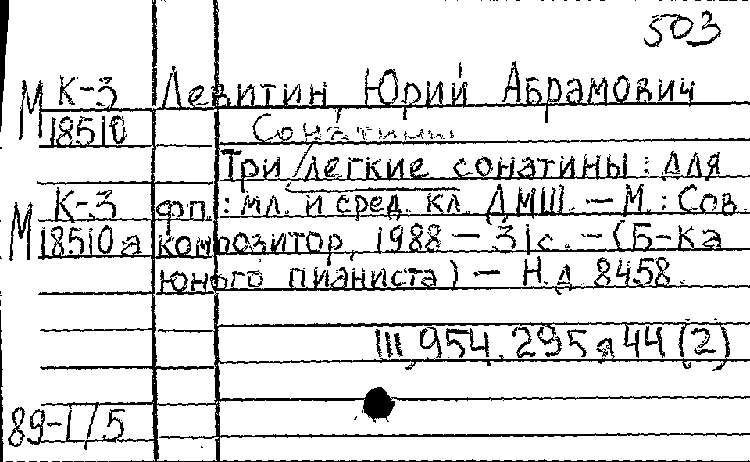 503
М К-3 Левитин, Юрий Абрамович
18510 Сонатины
Три легкие сонатины : для
М К-3 фп. : мл. и сред. кл. ДМШ. — М. : Сов.
18510а композитор, 1988 — 31с. — (Б-ка
юного пианиста) — Н.д. 8458.
III, 954. 295я44 (2)
89-1/5